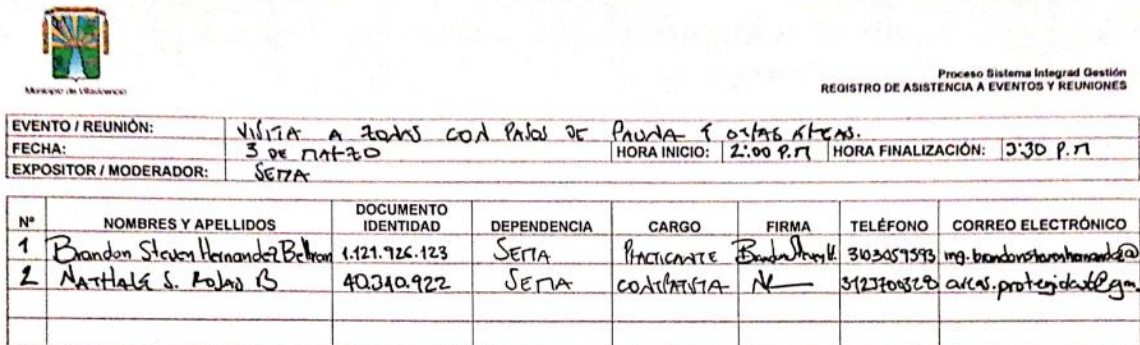 Municipio de Villavicencio
Proceso Sistema Integrad Gestión
REGISTRO DE ASISTENCIA A EVENTOS Y REUNIONES
EVENTO / REUNIÓN: VISITA A ZONAS CON PASOS DE FAUNA Y OTRAS AREAS.
FECHA: 3 DE MARZO HORA INICIO: 2:00 P.M HORA FINALIZACIÓN: 3:30 P.M
EXPOSITOR / MODERADOR: SEMA
Nº NOMBRES Y APELLIDOS DOCUMENTO IDENTIDAD DEPENDENCIA CARGO FIRMA TELÉFONO CORREO ELECTRÓNICO
1 Brandon Steven Hernandez Beltran 1.121.926.123 SEMA PRACTICANTE 3103059593
2 NATHALE S. ROJAS B 40.340.922 SEMA CONTRATISTA 3123700328